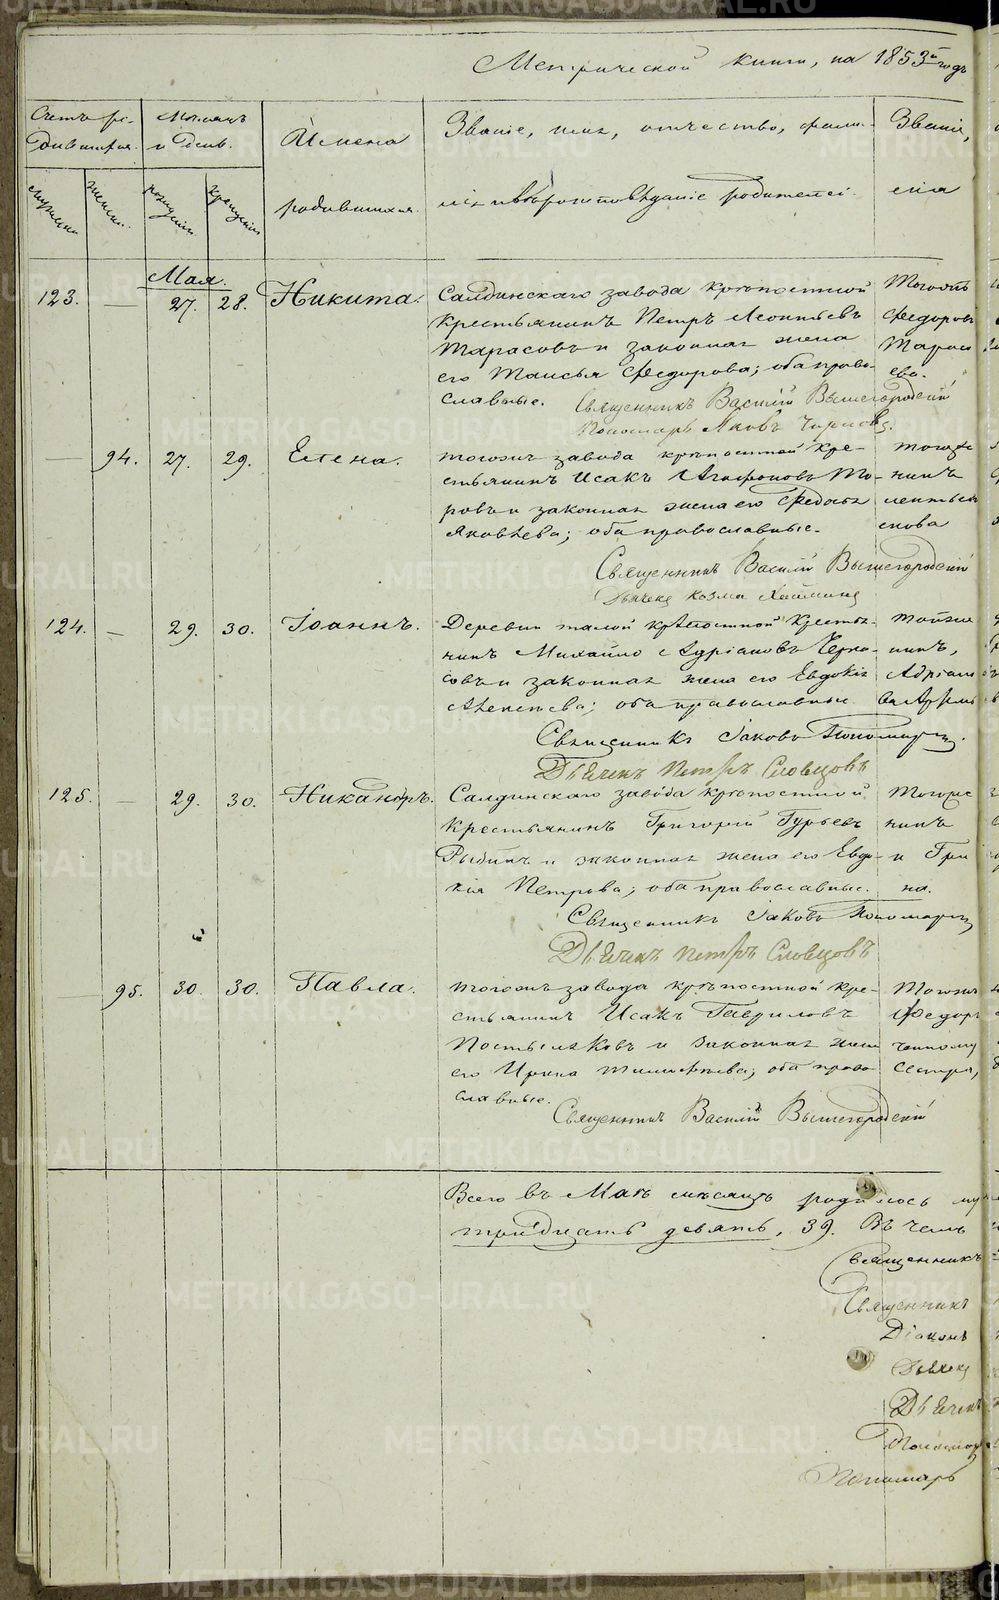 Метрической книги, на 1853й годъ
Счетъ ро-
дившихся.
Мѣсяцъ
и день.
Имена
родившихся.
Званіе, имя, отчество, фами-
лія и вѣроисповѣданіе родителей
Званіе,
мужеска
женска.
рожденія
крещенія
Мая.
123. — 27. 28. Никита.
Салдинскаго завода крѣпостной
крестьянинъ Петръ Леонтьевъ
Тарасовъ и законная жена
его Таисья Федорова; оба право-
славные.
Тогожъ
Федоровъ
Тарасо
ева.
Священникъ Василій Вышегородскій
Пономарь Яковъ
— 94. 27. 29. Елена.
тогожъ завода крѣпостной кре-
стьянинъ Исакъ Агафоновъ То-
ровъ и законная жена его Федосья
Яковлева; оба православные.
нинъ
Священникъ Василій Вышегородскій
Дьячекъ Козма
124. — 29. 30. Іоаннъ.
Деревни малой крѣпостной крестья-
нинъ Михайло Адріановъ Черка-
совъ и законная жена его Евдокія
Алексѣева; оба православные.
нинъ,
Адріан
Священникъ Іаковъ Пономаревъ.
Дьячекъ Петръ Словцовъ
125. — 29. 30. Никаноръ.
Салдинскаго завода крѣпостной
крестьянинъ Григорій Гурьевъ
Рыбинъ и законная жена его Евдо-
кія Петрова; оба православные.
Тогоже
нинъ
и Гри
на.
Священникъ Іаковъ Пономаревъ
Дьячекъ Петръ Словцовъ
95. 30. 30. Павла.
тогожъ завода крѣпостной кре-
стьянинъ Исакъ Гавриловъ
Постыляковъ и законная жена
его Ирина Тимофѣева; оба право-
славные.
Тогожъ
Федоръ
сестра,
Священникъ Василій Вышегородскій
Всего въ Маѣ мѣсяцѣ родилось му
тридцать девять, 39. Въ чемъ
Священникъ
Священникъ
Діаконъ
Дьячекъ
Дьячекъ
Пономар
Пономарь
METRIKI.GASO-URAL.RU